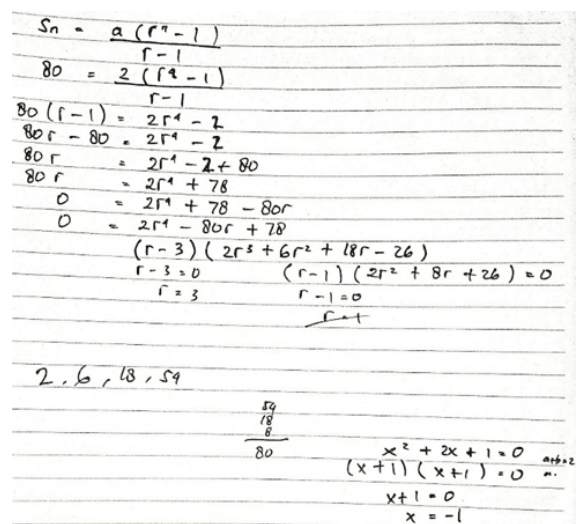 Sn = a (rⁿ - 1)
r - 1
80 = 2 (r⁴ - 1)
r - 1
80 (r - 1) = 2r⁴ - 2
80r - 80 = 2r⁴ - 2
80r = 2r⁴ - 2 + 80
80r = 2r⁴ + 78
0 = 2r⁴ + 78 - 80r
0 = 2r⁴ - 80r + 78
(r - 3) (2r³ + 6r² + 18r - 26)
r - 3 = 0 (r - 1) (2r² + 8r + 26) = 0
r = 3 r - 1 = 0
r = 1
2, 6, 18, 54
54
18
8
80
x² + 2x + 1 = 0 a+b=2
(x + 1) (x + 1) = 0
x + 1 = 0
x = -1